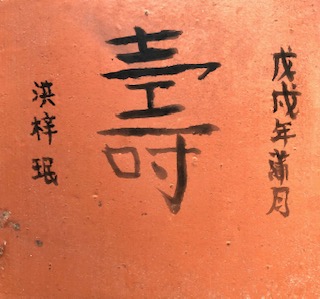 戊戌年蒲月
壽
洪梓珉